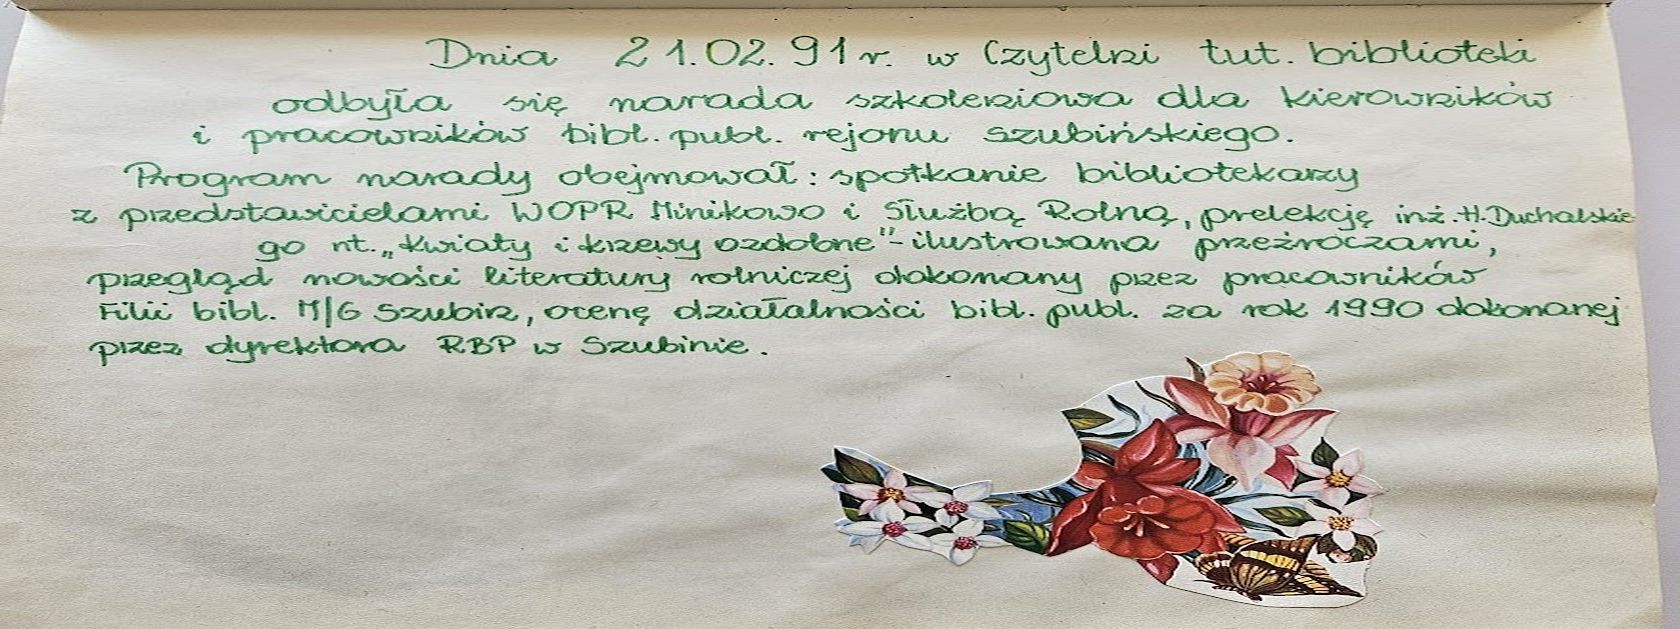 Dnia 21.02.91 r. w Czytelni tut. biblioteki
odbyła się narada szkoleniowa dla kierowników
i pracowników bibl. publ. rejonu szubińskiego.
Program narady obejmował: spotkanie bibliotekarzy
z przedstawicielami WOPR Minikowo i Służbą Rolną, prelekcję inż. H. Duchalskie-
go nt. „Kwiaty i krzewy ozdobne" - ilustrowana przeźroczami,
przegląd nowości literatury rolniczej dokonany przez pracowników
Filii bibl. M/G Szubin, ocenę działalności bibl. publ. za rok 1990 dokonanej
przez dyrektora RBP w Szubinie.